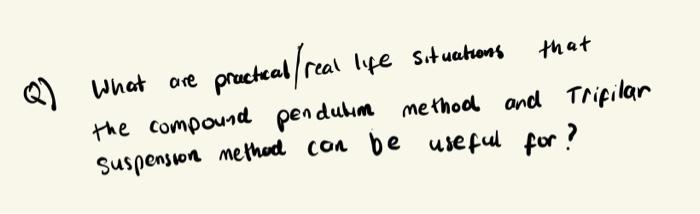 Q) What are practical/real life situations that
the compound pendulum method and Trifilar
suspension method can be useful for?